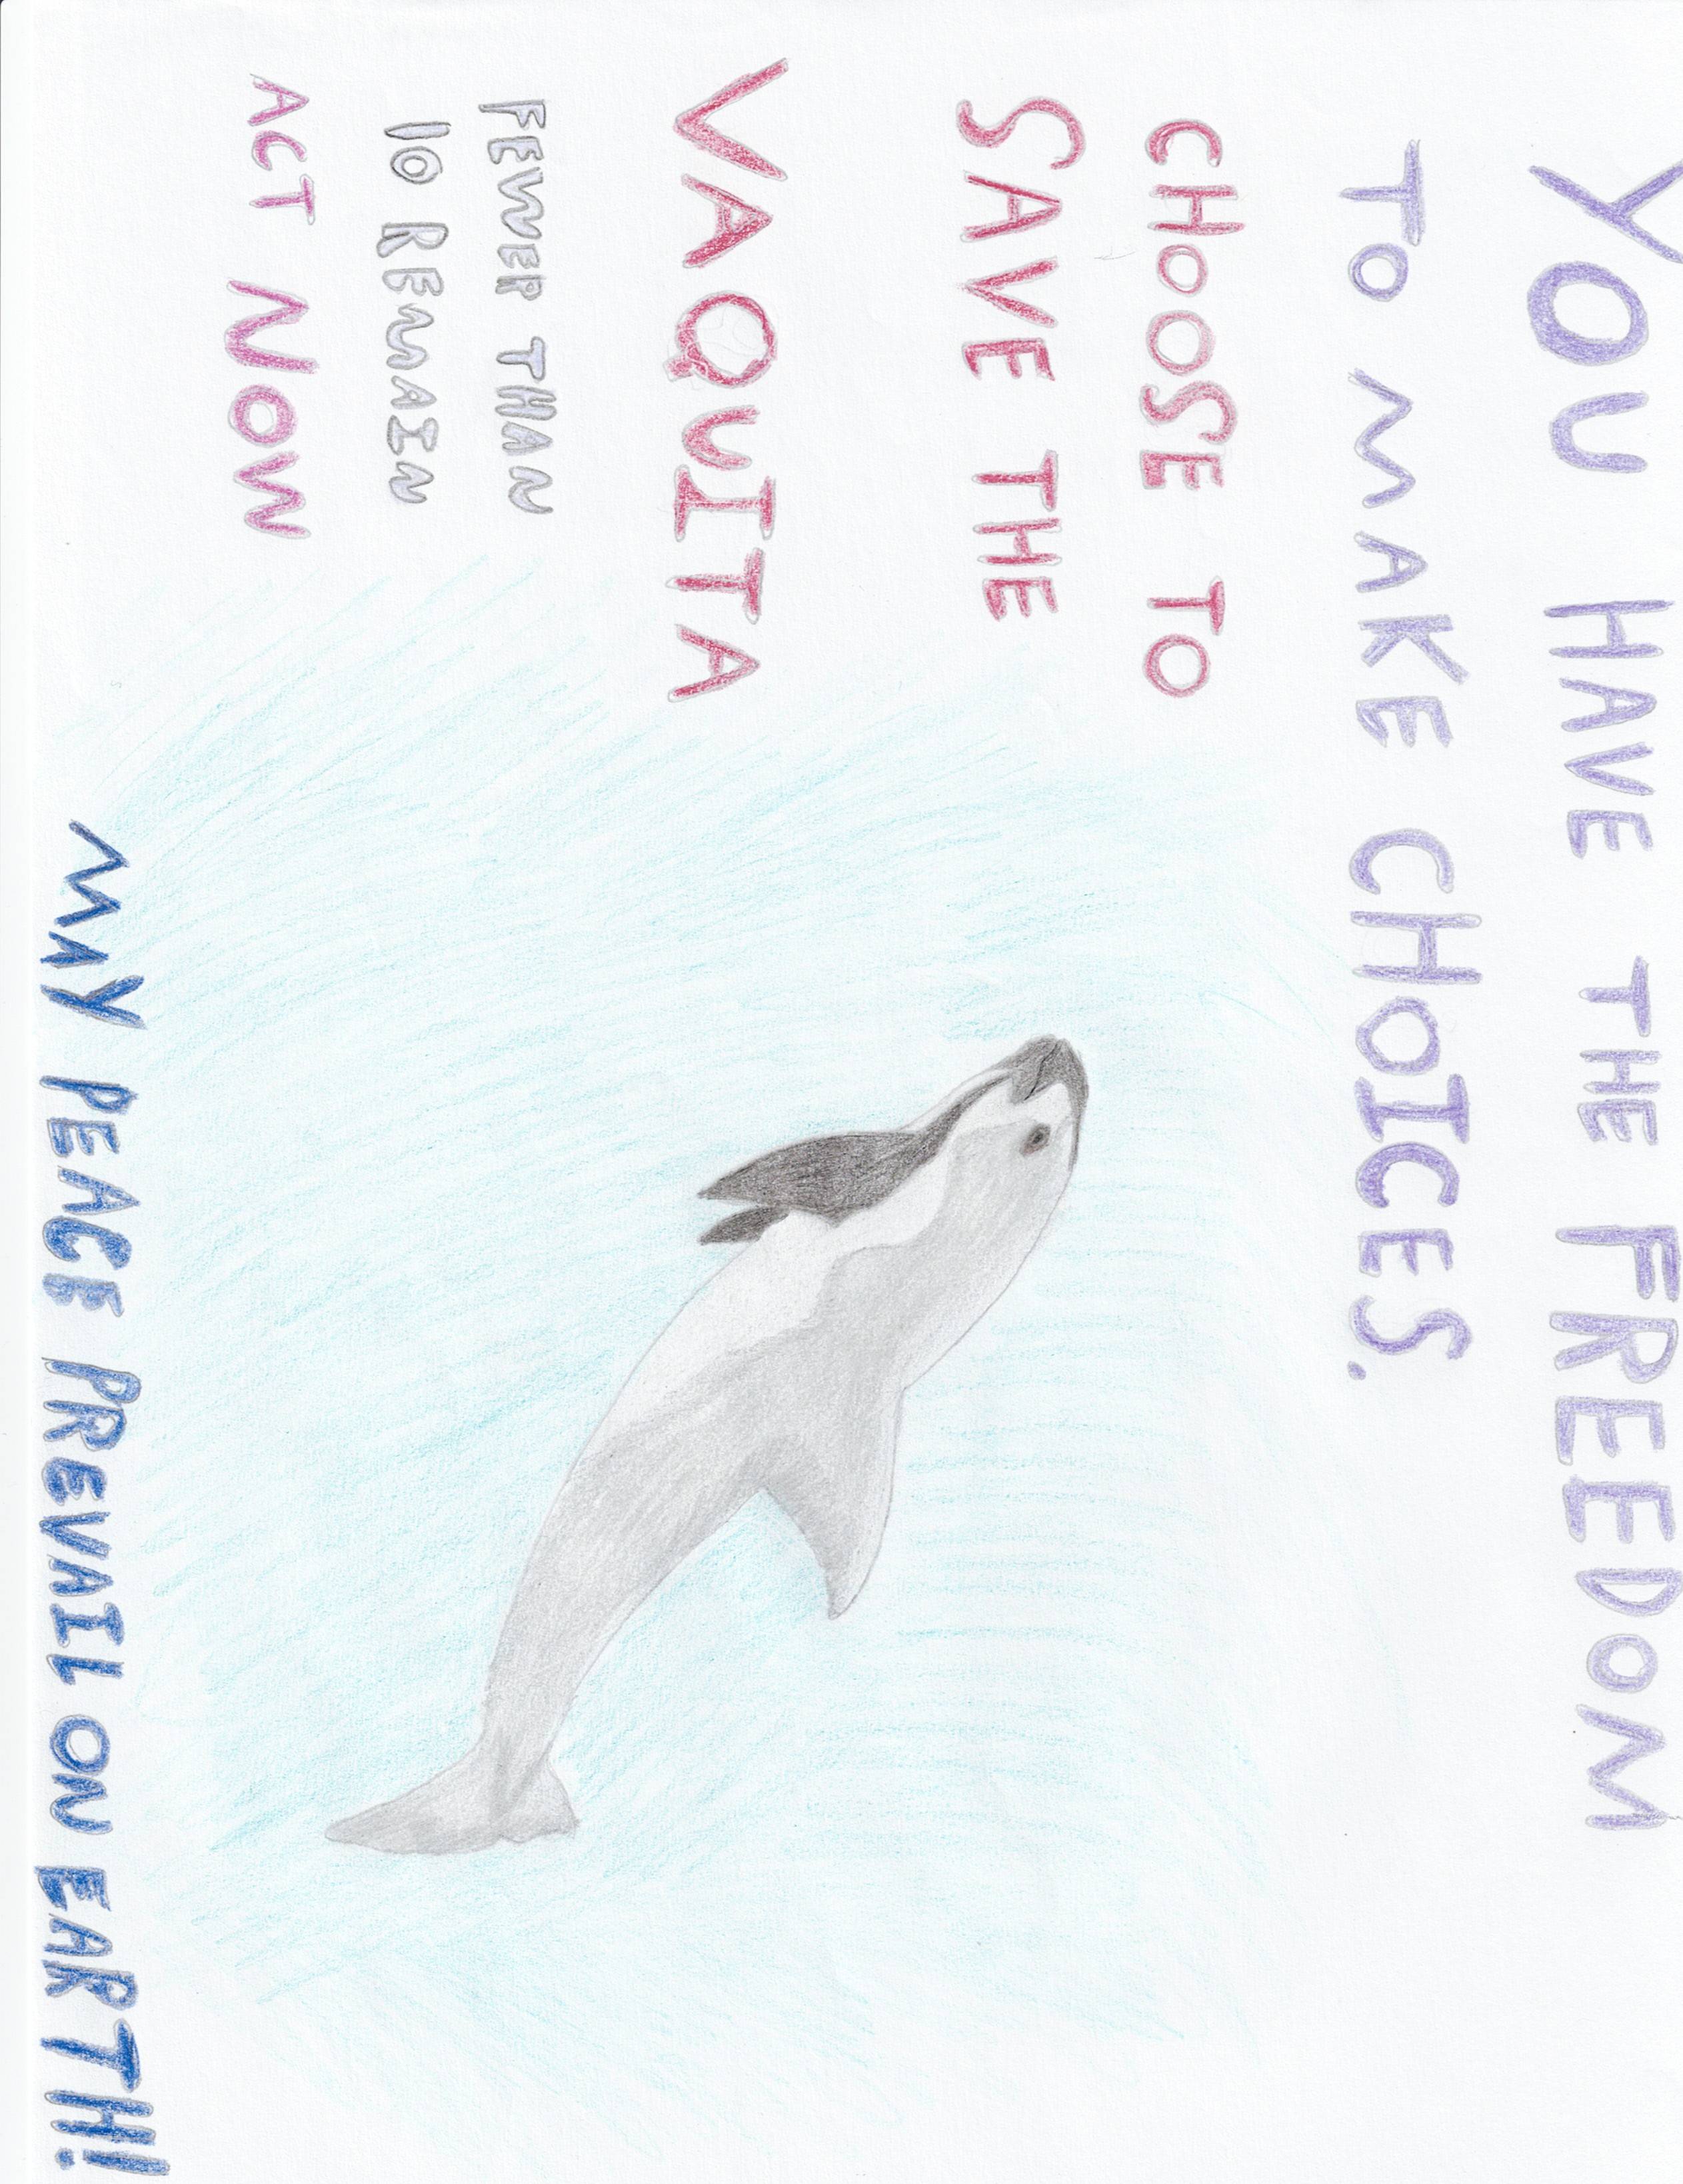 YOU HAVE THE FREEDOM
TO MAKE CHOICES.
CHOOSE TO
SAVE THE
VAQUITA
FEWER THAN
10 REMAIN
ACT NOW
MAY PEACE PREVAIL ON EARTH!